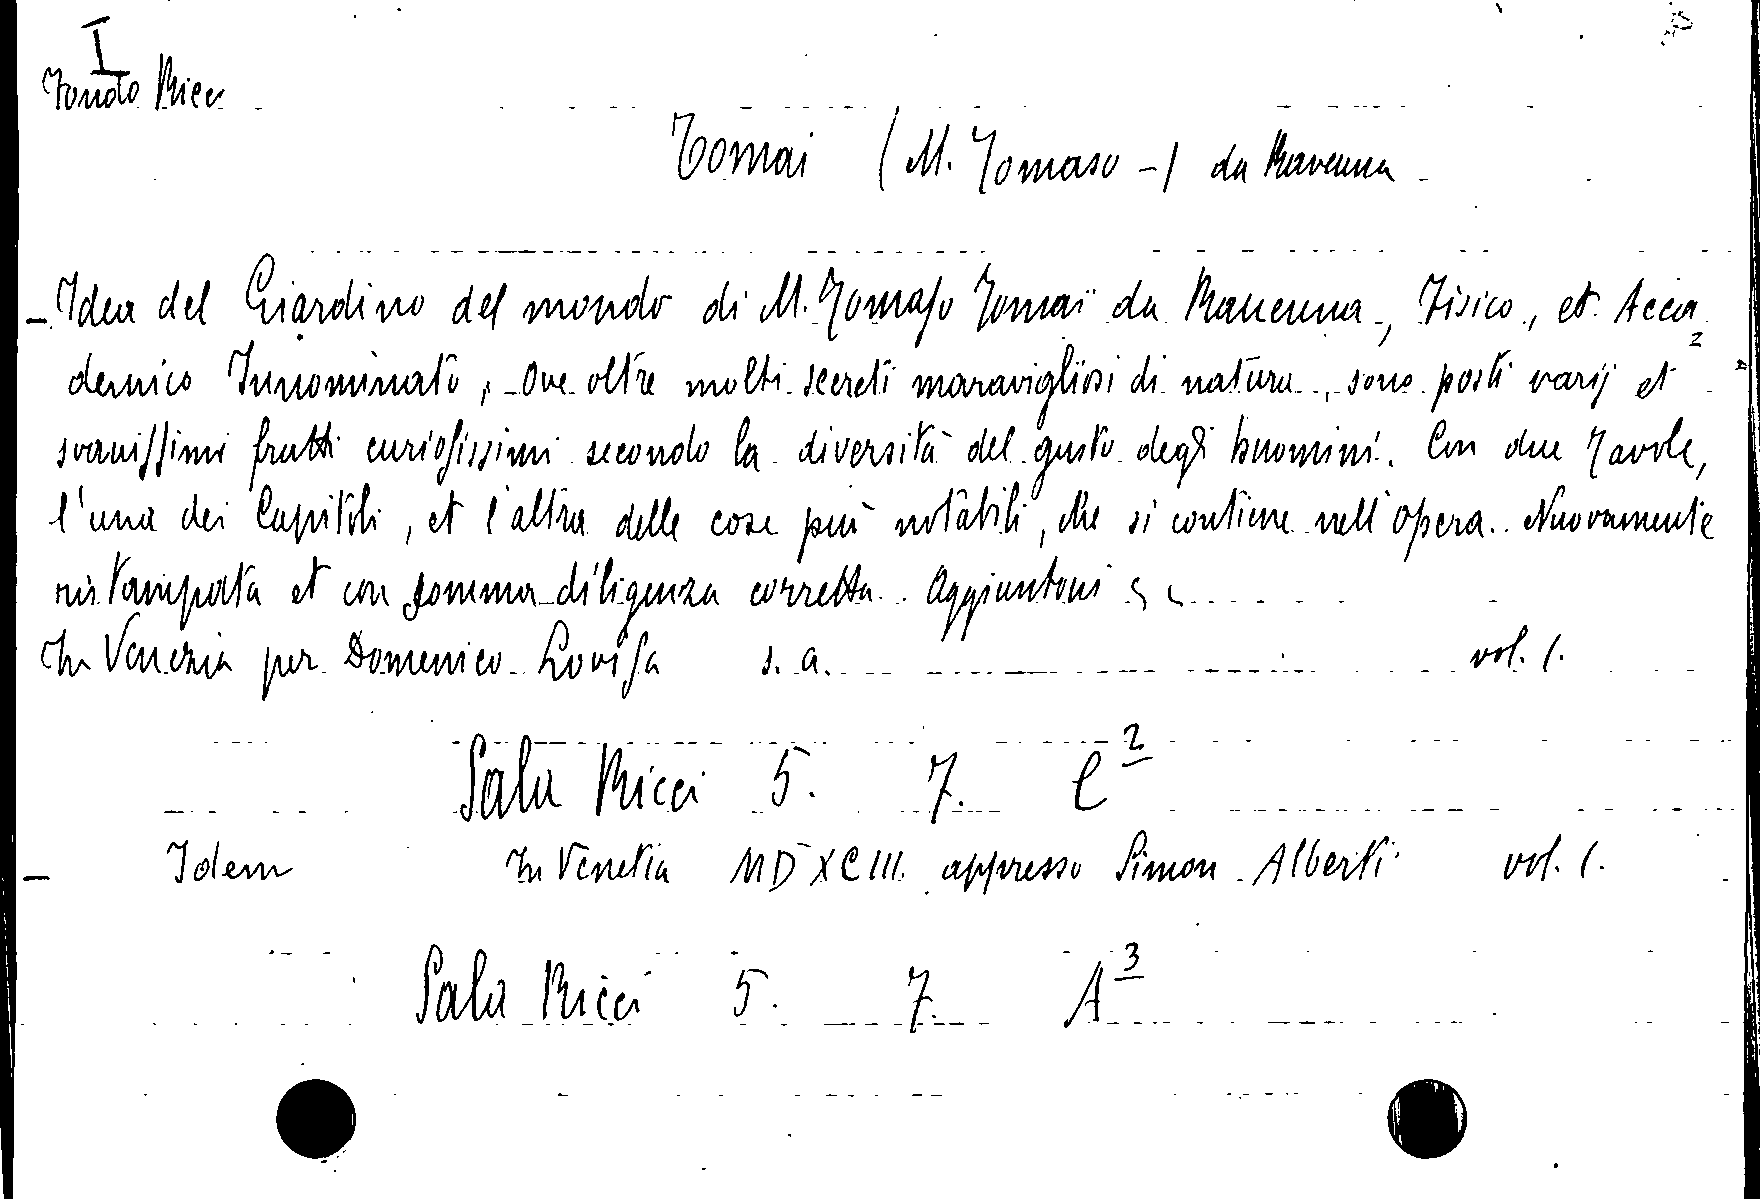 I
Fondo Ricci
Tomai (M. Tomaso -) da Ravenna
- Idea del Giardino del mondo di M. Tomaso Tomai da Rauenna, Fisico, et Acca=
demico Innominato, Ove oltre molti secreti maravigliosi di natura, sono posti varij et
soauissimi frutti curiosissimi secondo la diversità del gusto degl'huomini. Con due Tavole,
l'una dei Capitoli, et l'altra delle cose più notabili, che si contiene nell'opera. Nuovamente
ristampata et con somma diligenza corretta. Aggiuntovi
In Venezia per Domenico Lovisa s. a. vol. 1.
Sala Ricci 5. 7. C²
- Idem In Venetia MDXCIII. appresso Simon Alberti vol. 1.
Sala Ricci 5. 7. A³